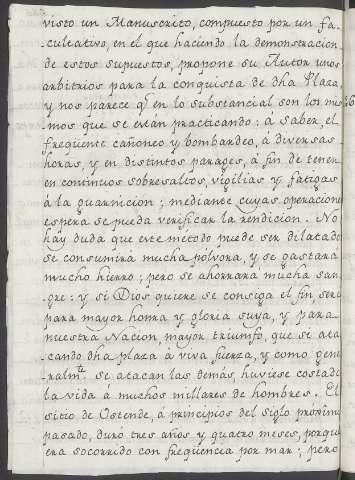 visto un Manuscrito, compuesto por un fa-
cultativo, en el que haciendo la demonstracion
de estos supuestos, propone su Autor unos
arbitrios para la conquista de dha Plaza,
y nos parece qe en lo substancial son los mis-
mos que se están practicando: á saber, el
freqüente cañoneo y bombardeo, á diversas
horas, y en distintos parages, á fin de tener
en continuos sobresaltos, vigilias y fatigas
á la guarnicion; mediante cuyas operaciones
espera se pueda verificar la rendicion. No
hay duda que este metodo puede ser dilatado
se consumirá mucha pólvora, y se gastará
mucho hierro; pero se ahorrará mucha san-
gre: y si Dios quiere se consiga el fin, será
para mayor honra y gloria suya, y para
nuestra Nacion mayor triunfo, que si ata-
cando dha plaza á viva fuerza, y como gene-
ralmte se atacan las demás, huviese costado
la vida á muchos millares de hombres. El
sitio de Ostende, á principios del siglo próximo
pasado, duró tres años y quatro meses, porque
era socorrido con freqüencia por mar; pero